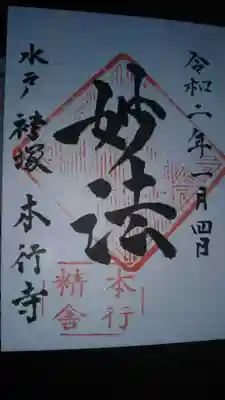 令和二年一月四日
妙法
水戸 袴塚 本行寺
本行
精舎